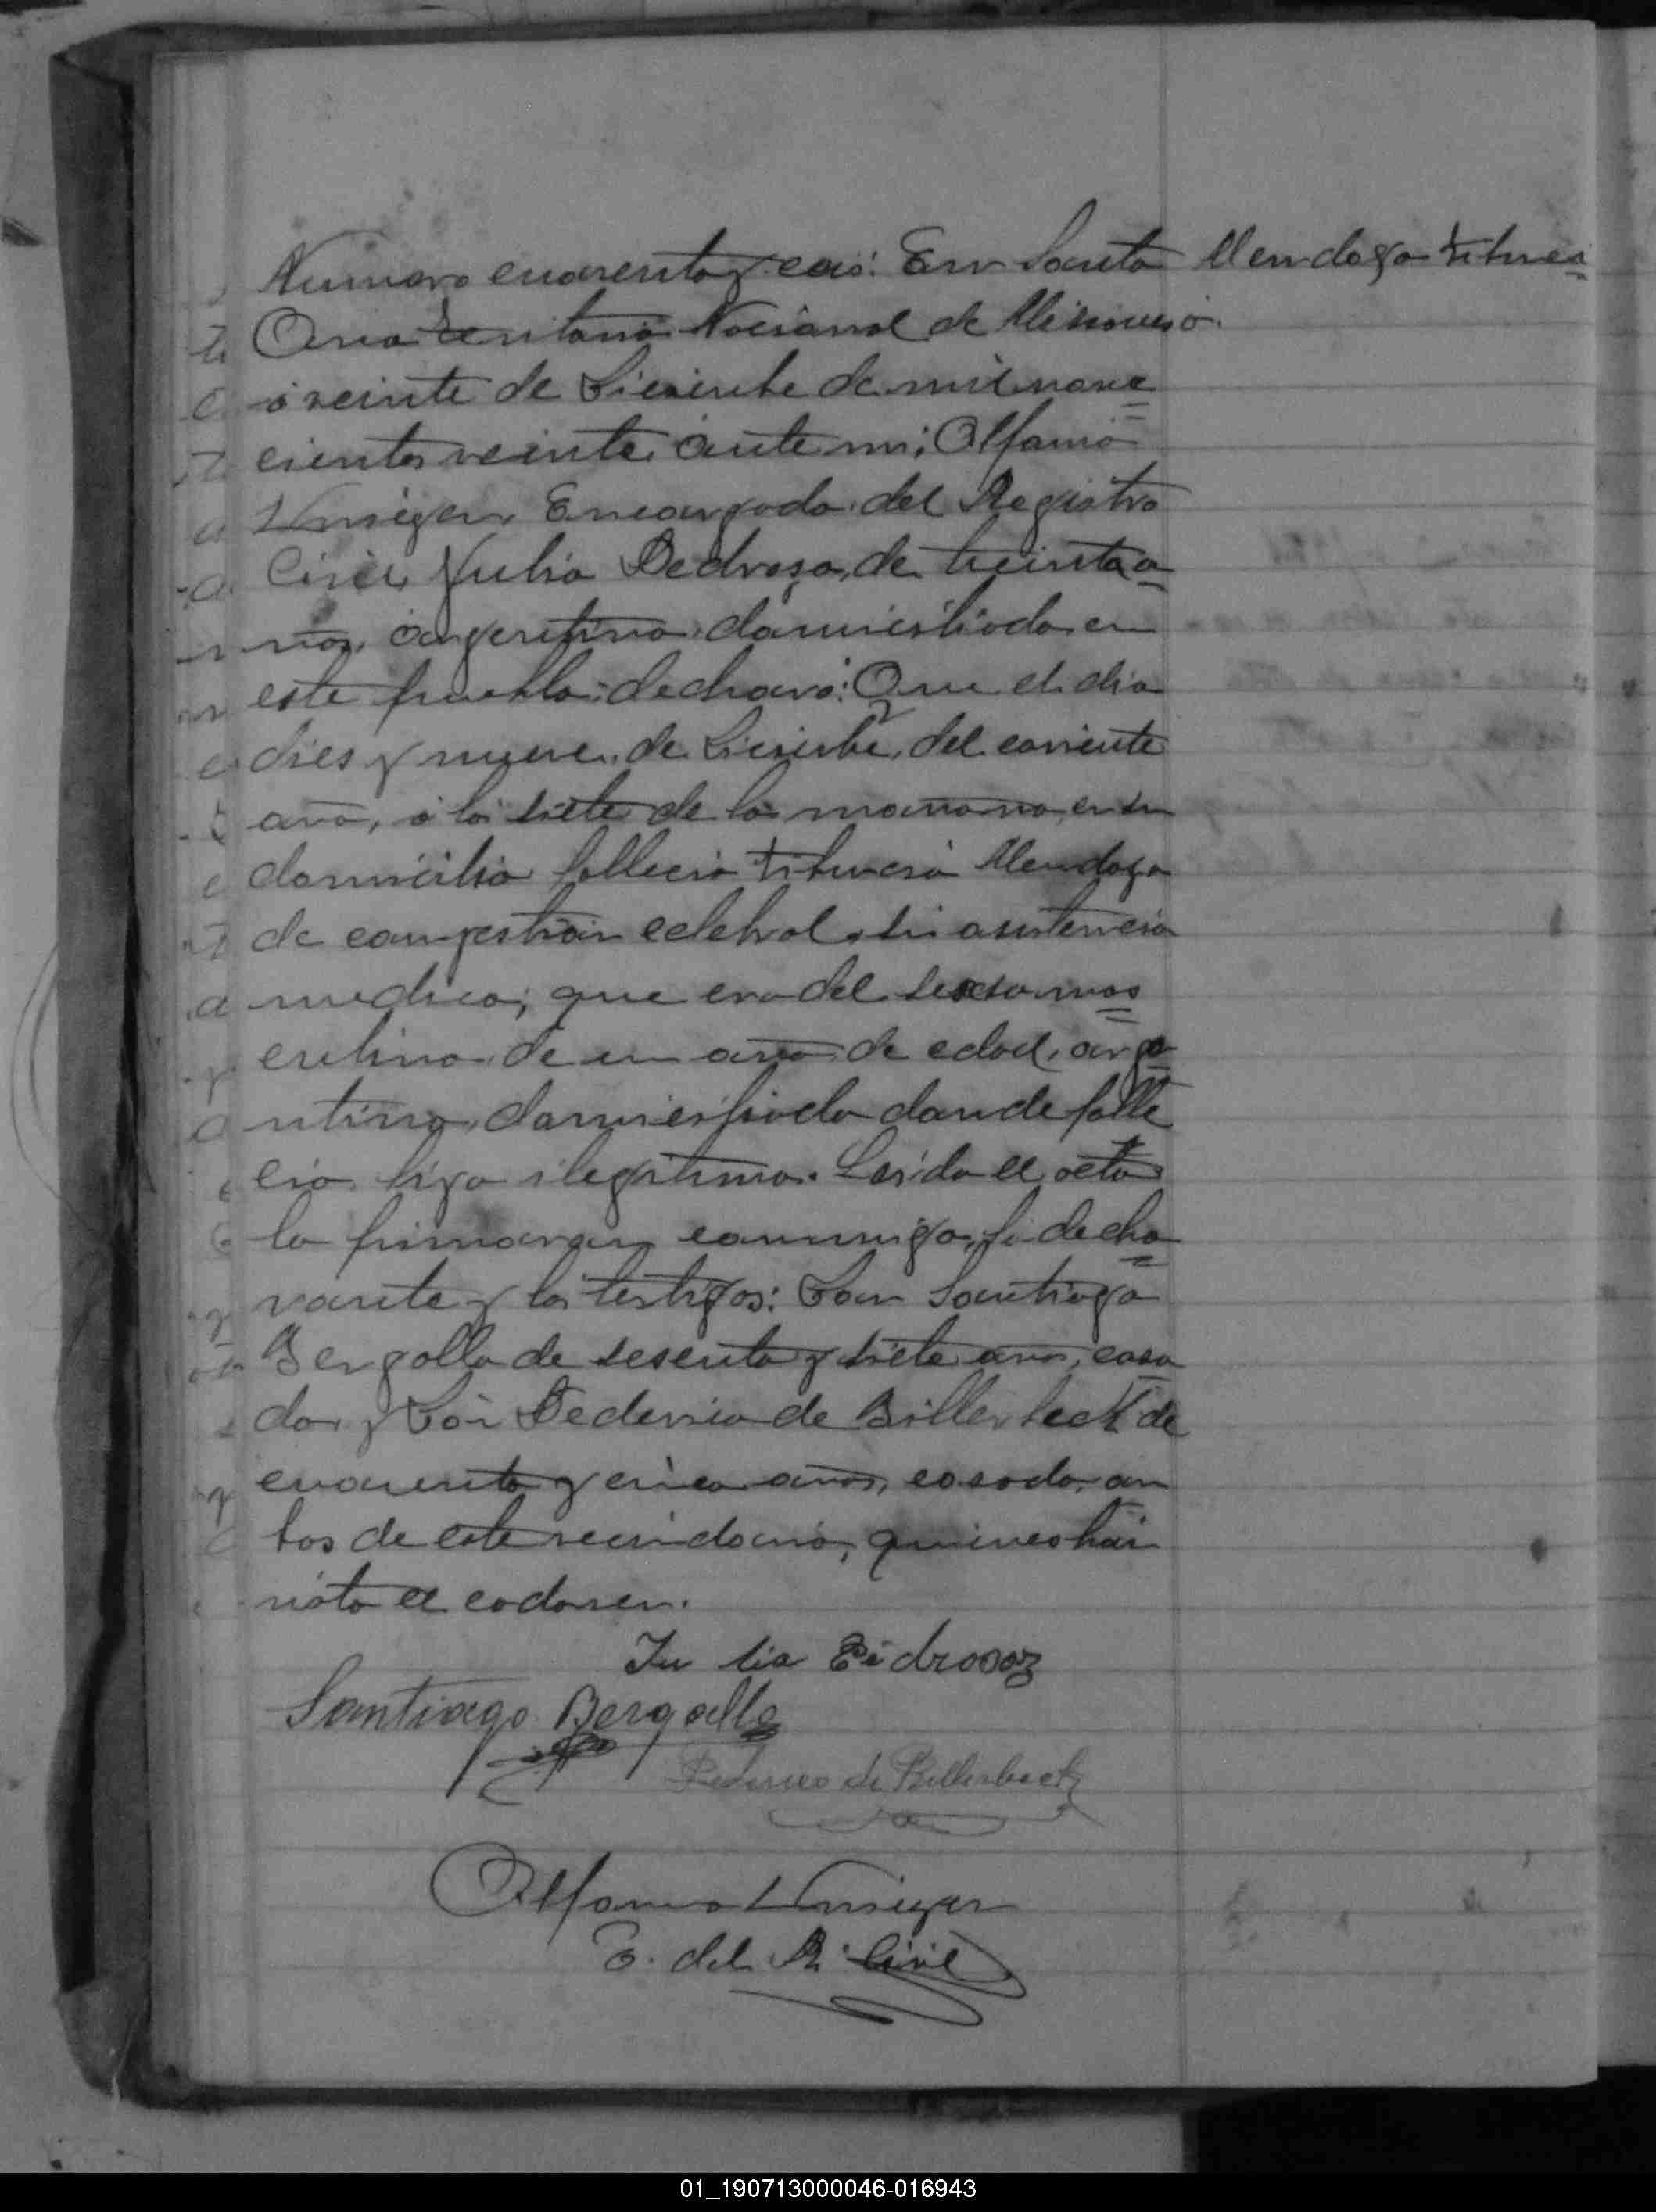 Numero cuarenta y seis: En Santa
Mendoza Tibursi=
Ana Territorio Nacional de Misiones
o.
á veinte de Diciembre de mil nove=
cientos veinte, ante mi; Alfonso
Encargado del Registro
Civil, Julia Pedroso, de treinta a=
ños, argentina, domiciliada en
este pueblo; declaró: Que el dia
dies y nueve, de Diciembre, del corriente
año, á las siete de la mañana, en su
domicilio fallecio Tiburcio Mendoza
de congestion celebral, sin asistencia
medica; que era del sexso mas=
culino de un año de edad, arge=
ntino, domiciliado donde falle
cio, hijo ilegitimo. Leida el acta
la firmaron conmigo, la decla=
rante y los testigos: Don Santiago
Bergallo de sesenta y siete años, casa
do, y Don Federico de Billerbeck de
cuarenta y cinco años, casado, am
bos de este vecindario, quienes han
visto el cadaver.
Julia Pedrosoz
Santiago Bergallo
Federico de Billerbeck
Alfonso
E. del R. Civil
01_190713000046-016943